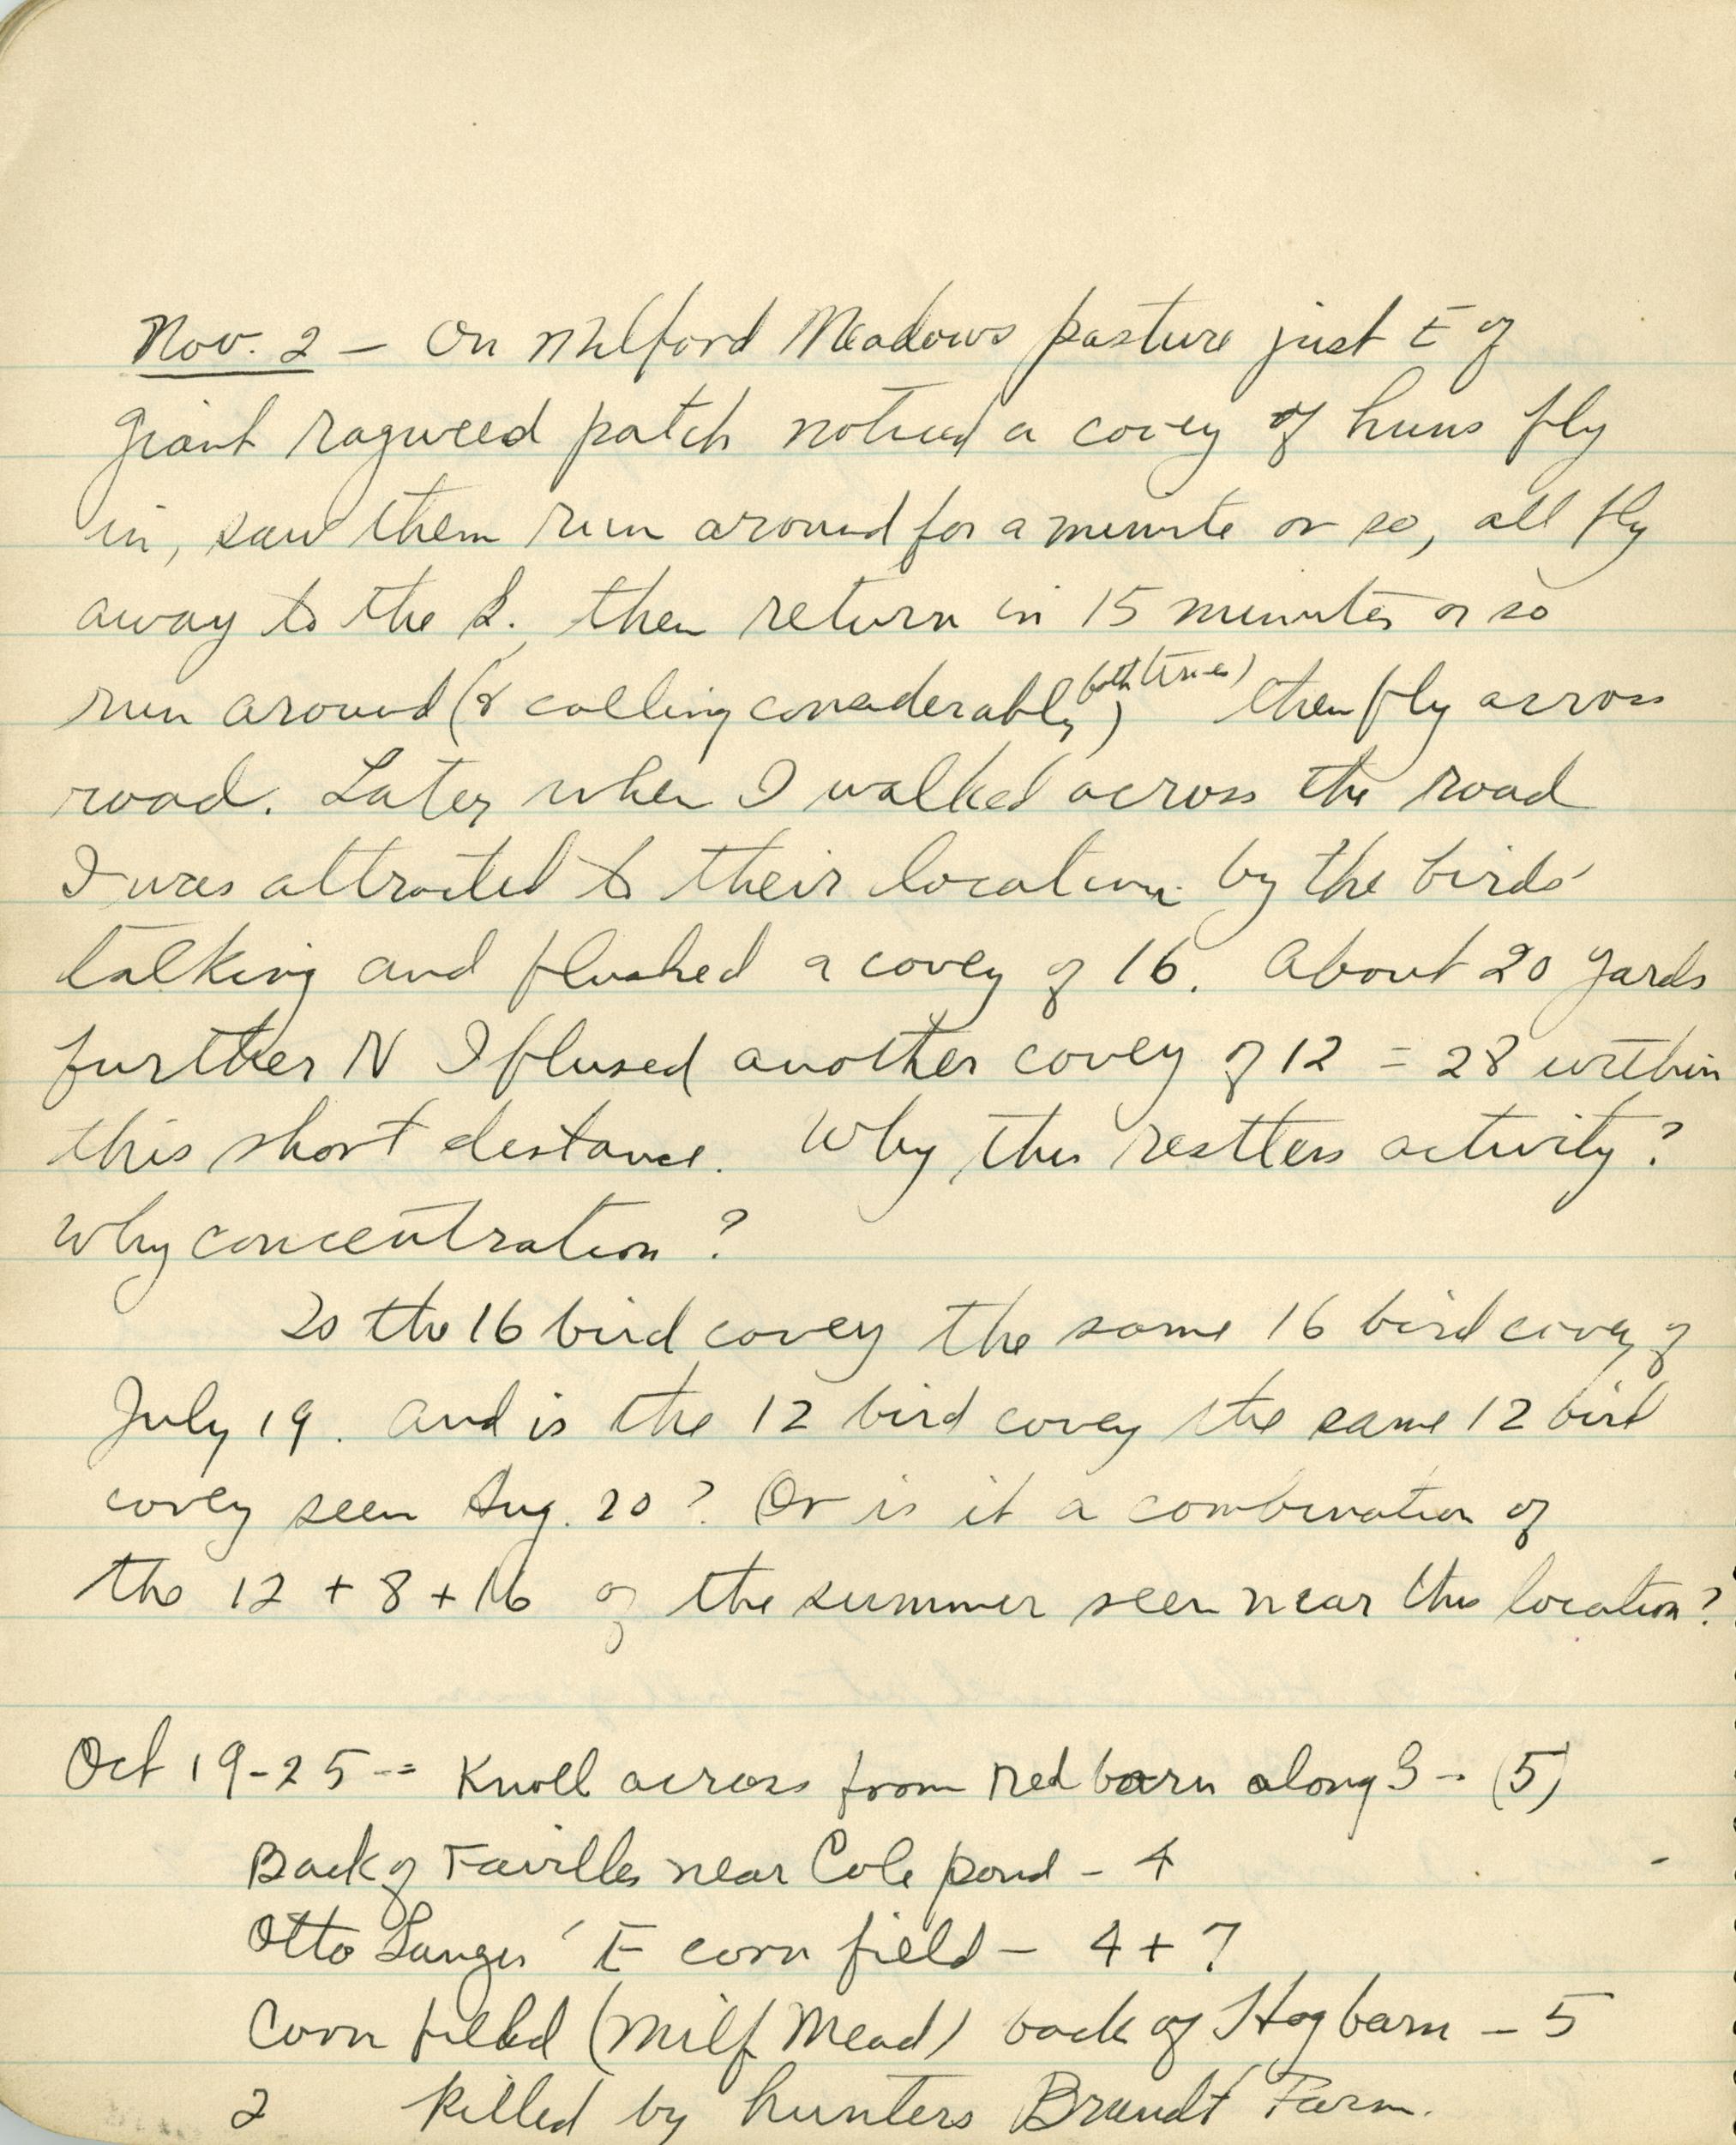 Nov. 2 — On Milford Meadows pasture just E of
giant ragweed patch noticed a covey of huns fly
in, saw them run around for a minute or so, all fly
away to the S. then return in 15 minutes or so
run around (& calling considerably both times) then fly across
road. Later when I walked across the road
I was attracted to their location by the birds'
talking and flushed a covey of 16. About 20 yards
further N I flused another covey of 12 = 28 within
this short distance. Why this restless activity?
Why concentration?
Is the 16 bird covey the same 16 bird covey of
July 19. And is the 12 bird covey the same 12 bird
covey seen Aug. 20? Or is it a combination of
the 12 + 8 + 16 of the summer seen near this location?
Oct 19-25 -- Knoll across from red barn along - (5)
Back of Favilles near Cole pond - 4
Otto Langes' E corn field - 4 + 7
Corn field (Milf Mead) back of Hog barn - 5
2 killed by hunters Brandt Farm.